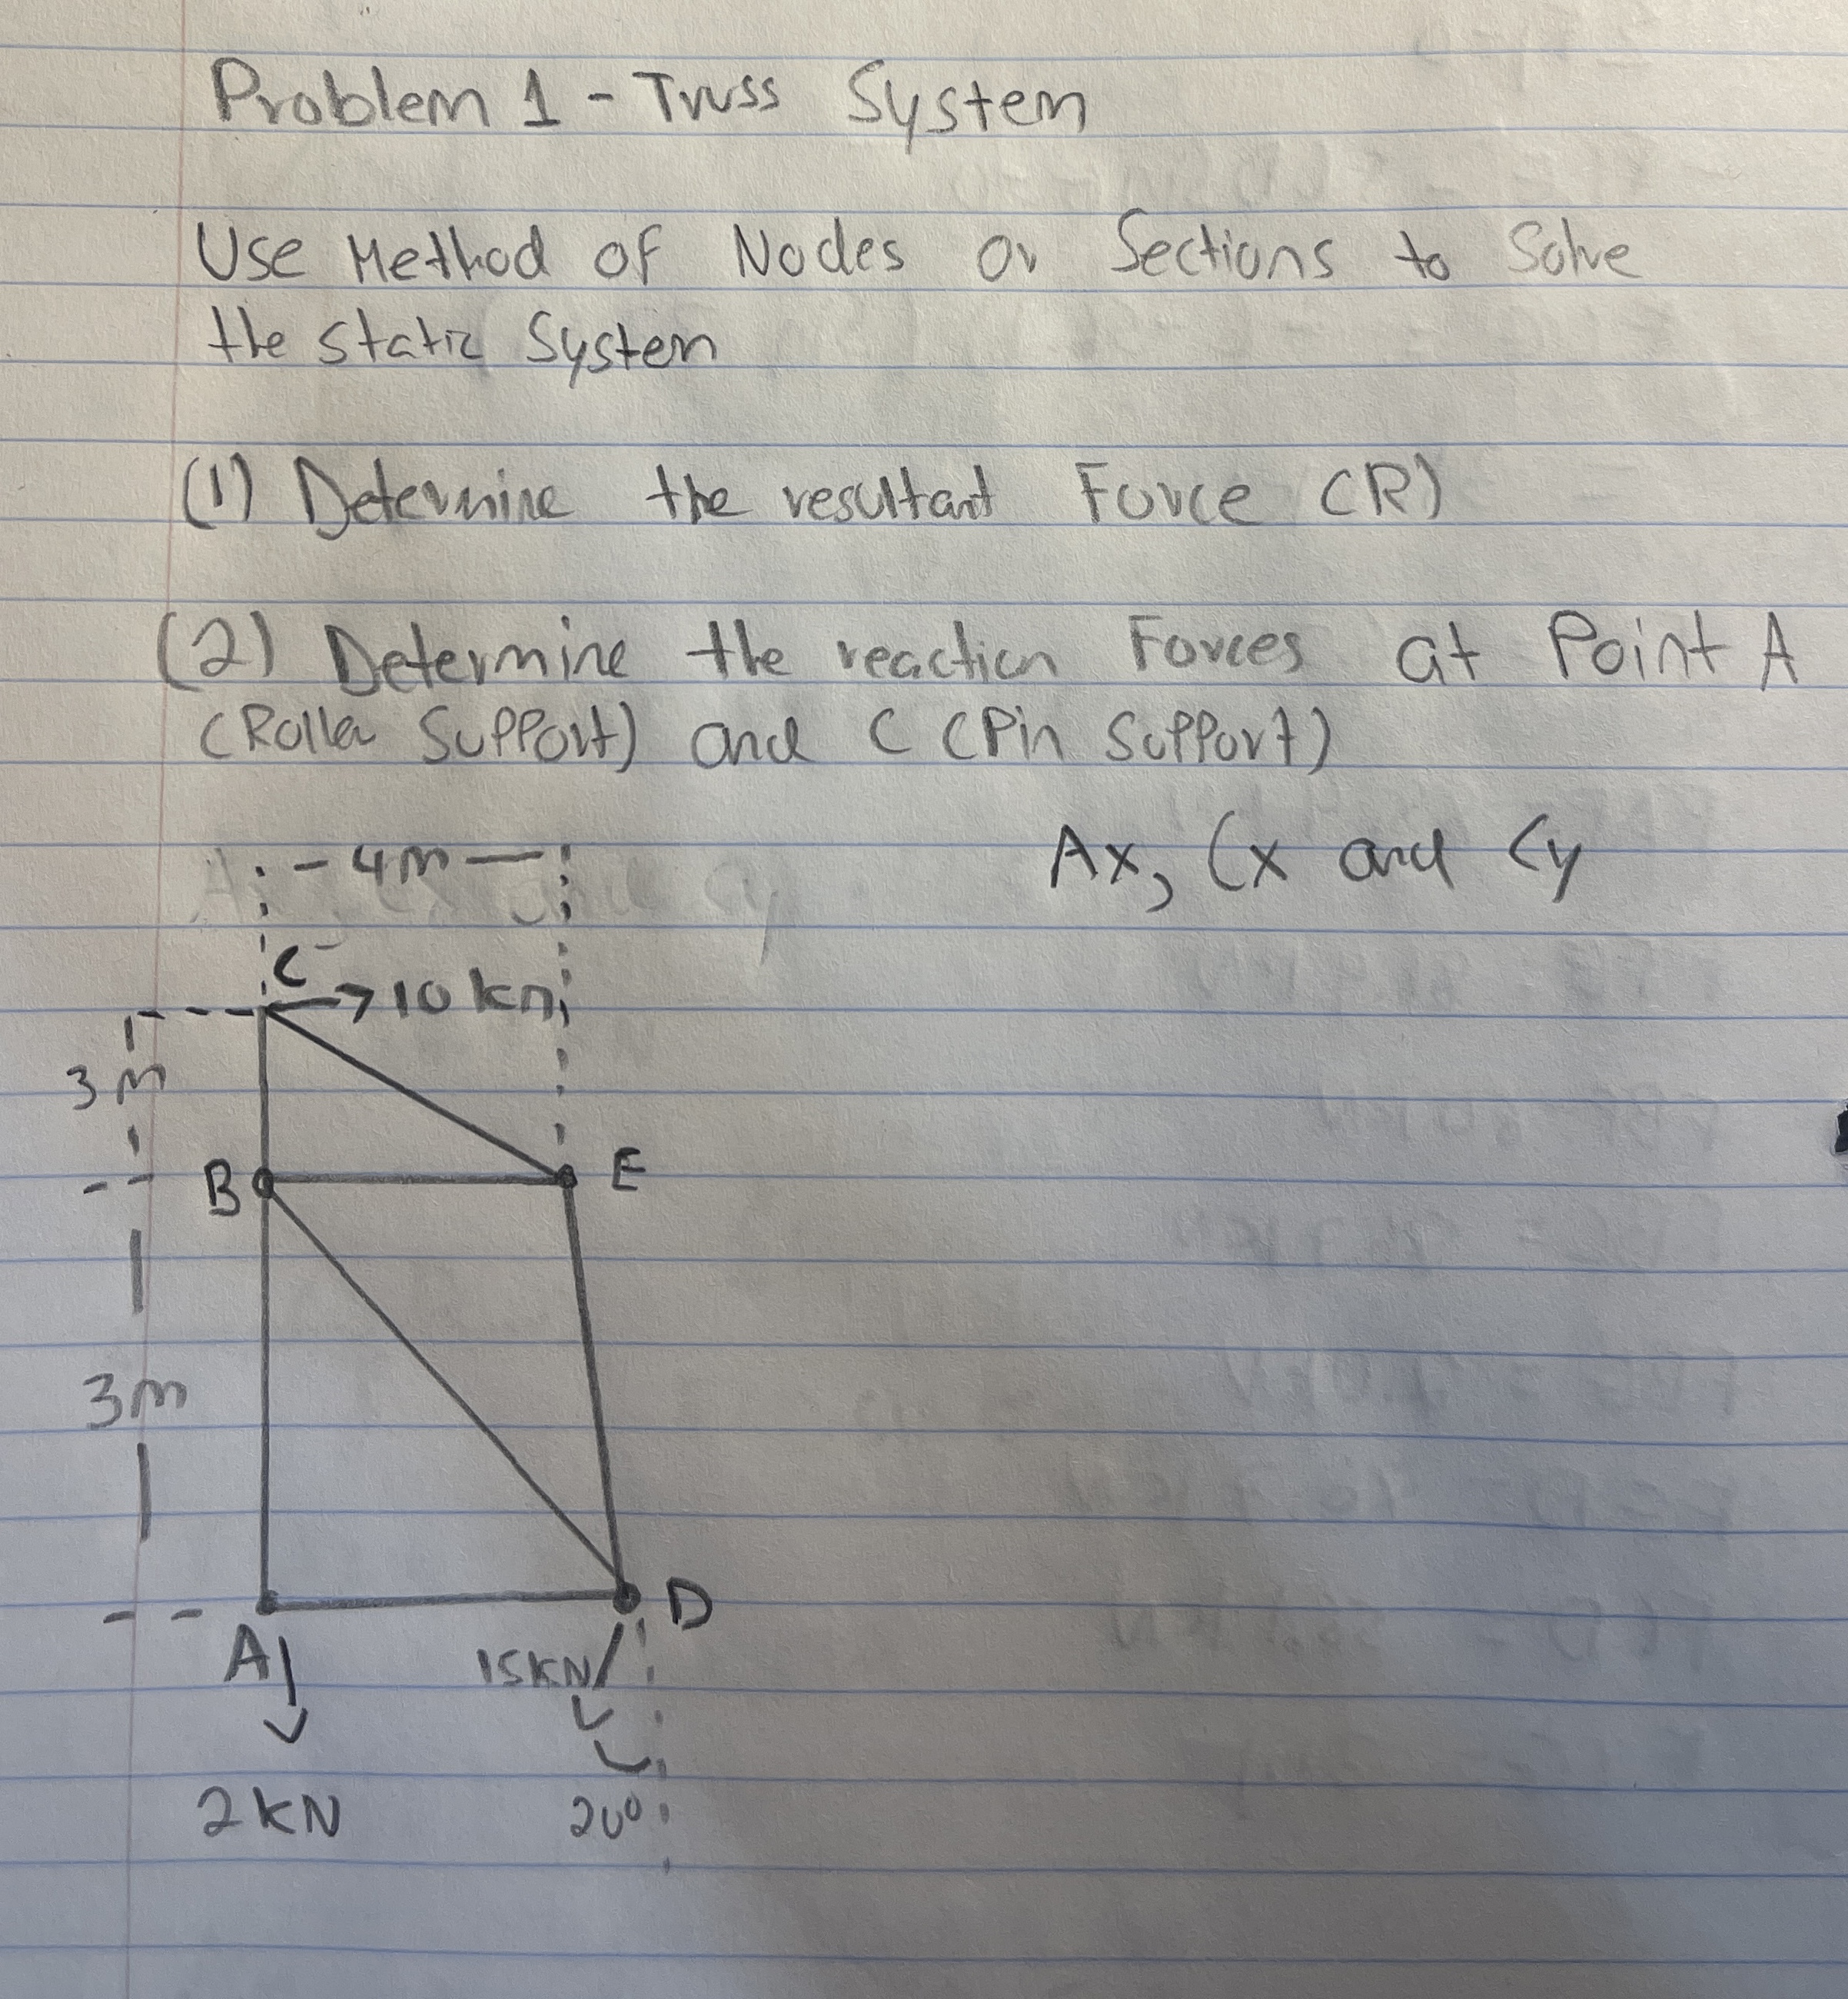 Problem 1 - Truss System
Use Method of Nodes or Sections to Solve
the static System
(1) Determine the resultant Force (R)
(2) Determine the reaction Forces at Point A
(Roller Support) and C (Pin Support)
Ax, Cx and Cy
4m
C
10 kn
3 m
B
E
3m
A
D
15KN
2 KN
20°